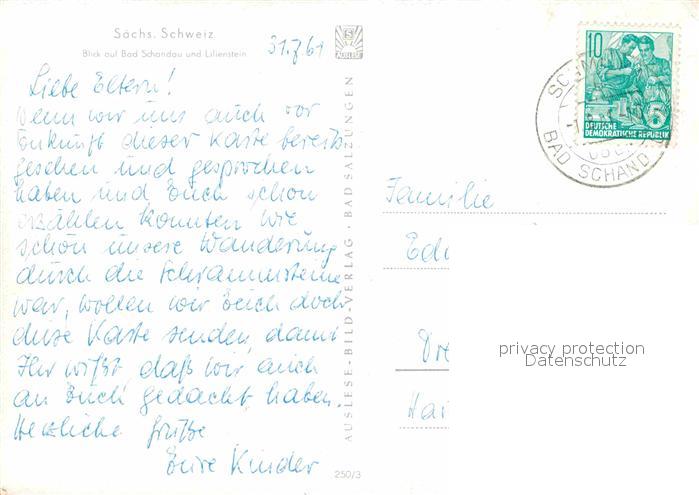 Sächs. Schweiz
Blick auf Bad Schandau und Lilienstein
31.7.61
Liebe Eltern!
Wenn wir uns auch vor
Ankunft dieser Karte bereits
gesehen und gesprochen
haben und Euch schon
erzählen konnten wie
schön unsere Wanderung
durch die Schrammsteine
war, wollen wir Euch doch
diese Karte senden, damit
Ihr wißt, daß wir auch
an Euch gedacht haben.
Herzliche Grüße
Eure Kinder
AUSLESE-BILD-VERLAG · BAD SALZUNGEN
250/3
AUSLESE
10
5
DEUTSCHE
DEMOKRATISCHE REPUBLIK
BAD SCHAND
Familie
privacy protection
Datenschutz